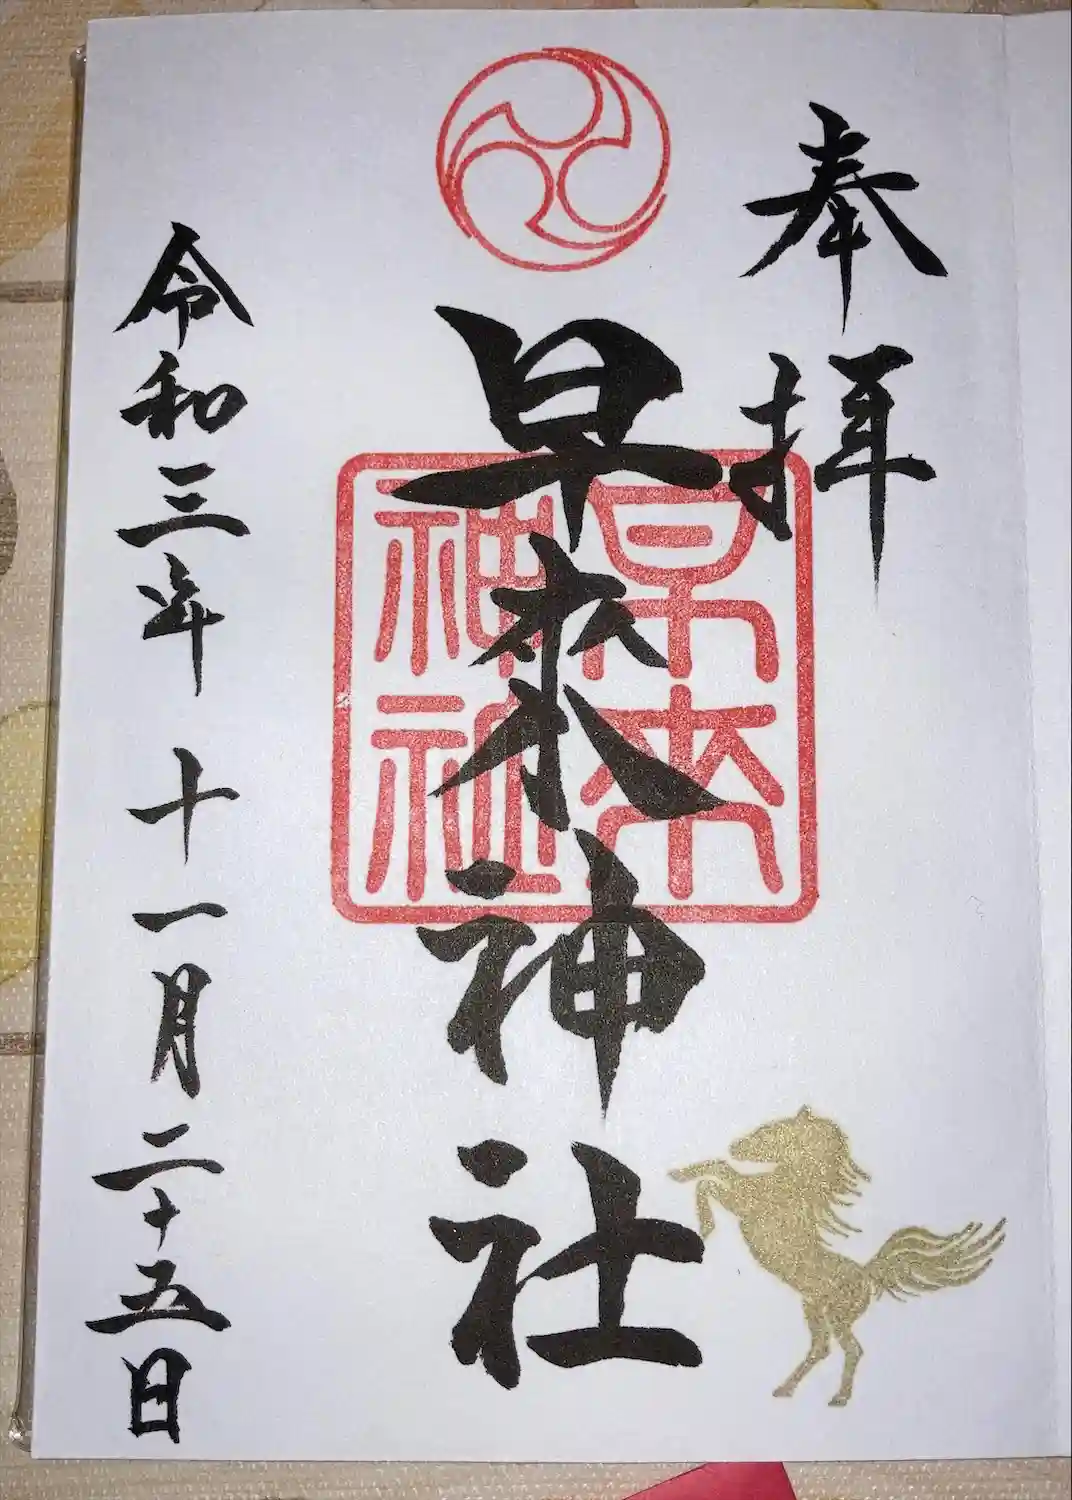 奉拝
早来神社
早来
神社
令和三年十一月二十五日